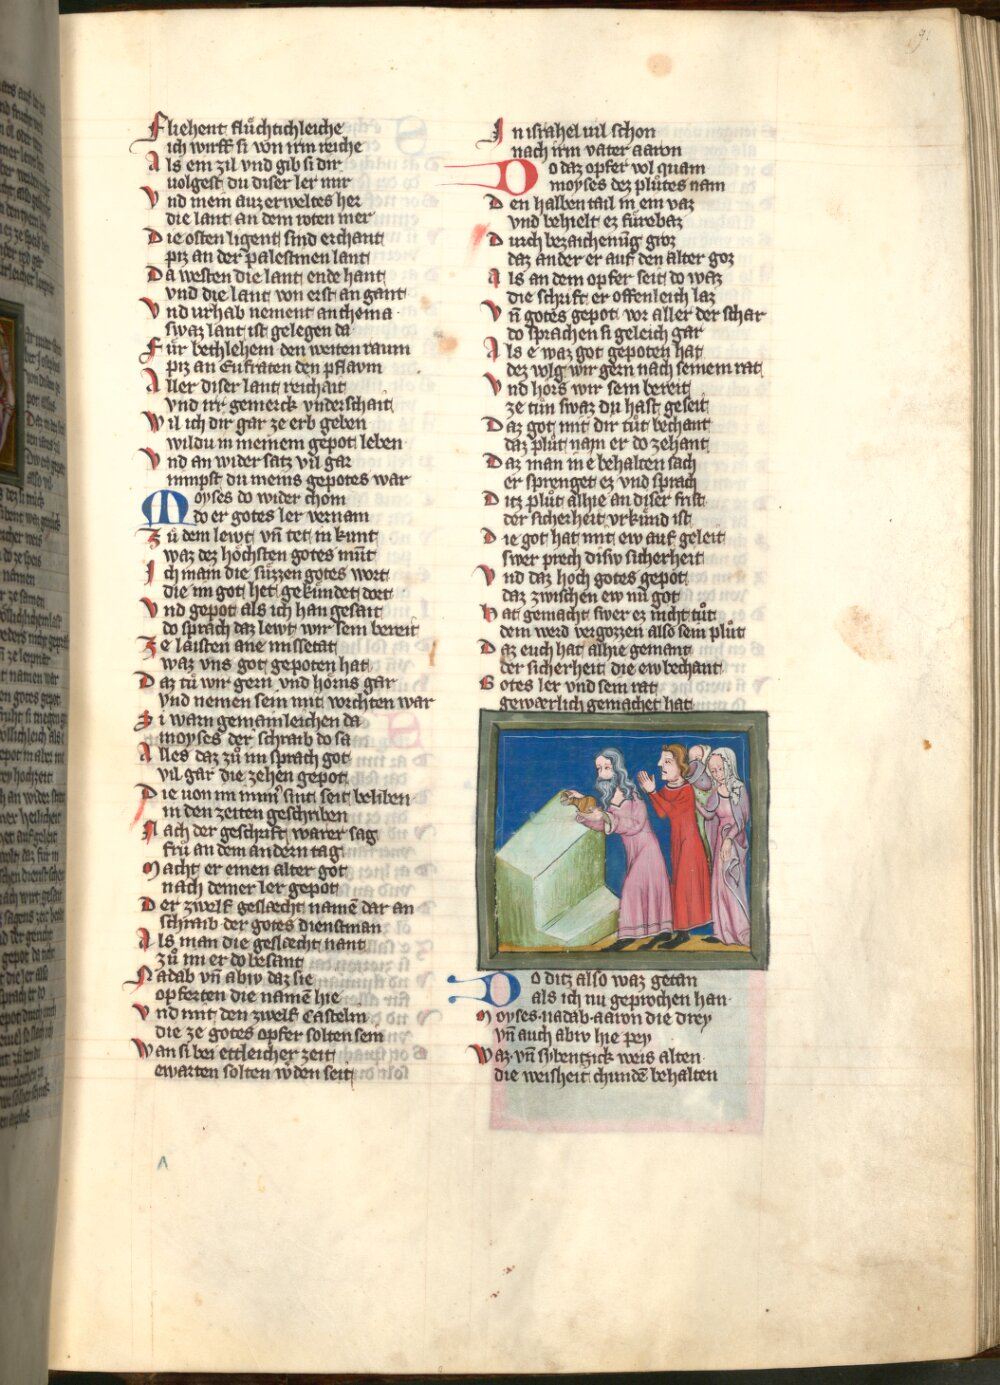 Fliehent fluͤchtichleiche
ich wirff si von irm reiche
Als ein zil vnd gib si dir
uolgest du diser ler mir
Vnd mein auzerweltes her
die lant an dem roten mer
Die osten ligent sind erchant
piz an der palestinen lant
Da westen die lant ende hant
vnd die lant von erst an gant
Vnd urhab nement anchema
swaz lant ist gelegen da
Fuͤr bethlehem den weiten raum
piz an Eufraten den pflaum
Aller diser lant reichait
vnd irr gemerck vnderschait
Wil ich dir gar ze erb geben
wildu in meinem gepot leben
Vnd an wider satz vil gar
nimpst du meins gepotes war
Moyses do wider chom
do er gotes ler vernam
Zuͦ dem lewt vn̄ tet in kunt
waz dez hoͤchsten gotes muͤt
Ich main die suͤzzen gotes wort
die im got het gekuͤndet dort
Vnd gepot als ich han gesait
do sprach daz lewt wir sein bereit
Ze laisten ane missetat
waz vns got gepoten hat
Daz tuͦ wir gern vnd hoͤrns gar
vnd nemen sein mit wichten war
Si warn gemainleichen da
moyses der schraib do sa
Alles daz zuͦ im sprach got
vil gar die zehen gepot
Die uon im immˀ sint seit beliben
in den zeiten geschriben
Nach der geschrift warer sag
fruͤ an dem andern tag
Macht er einen alter got
nach deiner ler gepot
Der zwelf geslæcht namē dar an
schraib der gotes dienstman
Als man die geslæcht nant
zuͦ im er do besant
Nadab vn̄ abiv daz sie
opferten die namē hie
Vnd mit den zwelf Castelin
die ze gotes opfer solten sein
Wan si bei ettleicher zeit
ewarten solten wˀden seit
In israhel uil schon
nach irm vater aaron
Do daz opfer vol quam
moyses dez pluͤtes nam
Den halben tail in ein vaz
vnd behielt ez fuͤrebaz
Durch bezaichenūg groz
daz ander er auf den alter goz
Als an dem opfer seit do waz
die schrift er offenleich laz
Vn̄ gotes gepot vor aller der schar
do sprachen si geleich gar
Als e waz got gepoten hat
dez volg wir gern nach seinem rat
Vnd hoͤrs wir sein bereit
ze tuͦn swaz du hast geseit
Daz got mit dir tuͤt bechant
daz pluͤt nam er do zehant
Daz man in e behalten sach
er sprenget ez vnd sprach
Ditz pluͤt alhie an diser frist
der sicherheit vrkuͤnd ist
Die got hat mit ew auf geleit
swer prech disiv sicherheit
Vnd daz hoch gotes gepot
daz zwischen ew nuͦ got
Hat gemacht swer ez nicht tuͦt
dem werd vergozzen also sein pluͤt
Daz euch hat alhie gemant
der sicherheit die ew bechant
Gotes ler vnd sein rat
gewærlich gemachet hat
Do ditz also waz getan
als ich nu geprochen han
Moyses · nadab · aaron die drey
vn̄ auch abiv hie pey
Waz · vn̄ sybentzick weis alten
die weisheit chundē behalten